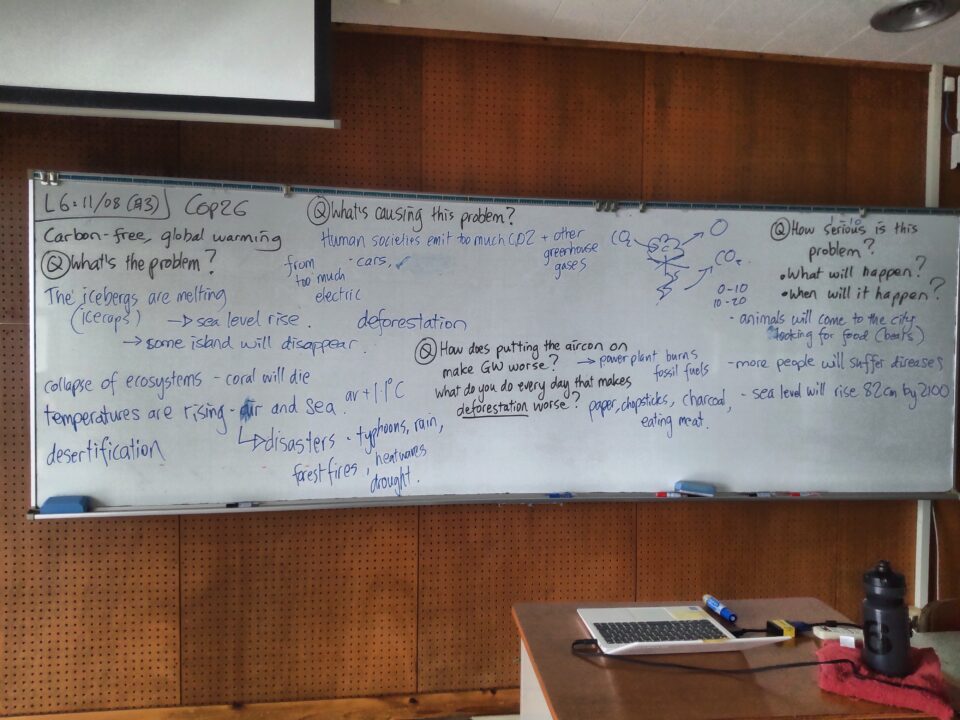 L6: 11/08 (月3) COP26
Carbon-free, global warming
Q What's the problem?
The icebergs are melting
(icecaps) → sea level rise.
→ some island will disappear.
collapse of ecosystems - coral will die
temperatures are rising - air and sea. av +1.1°C
disasters - typhoons, rain,
forest fires, heatwaves
drought.
desertification
Q What's causing this problem?
Human societies emit too much CO2 + other
greenhouse
gases
from
too much
electric
- cars,
deforestation
CO2
C
O
CO2
0-10
10-20
Q How does putting the aircon on
make GW worse? → power plant burns
fossil fuels
What do you do every day that makes
deforestation worse?
paper, chopsticks, charcoal,
eating meat.
1-10
Q How serious is this
problem?
• What will happen?
• When will it happen?
- animals will come to the city
looking for food (bears)
- more people will suffer diseases
- sea level will rise 82cm by 2100